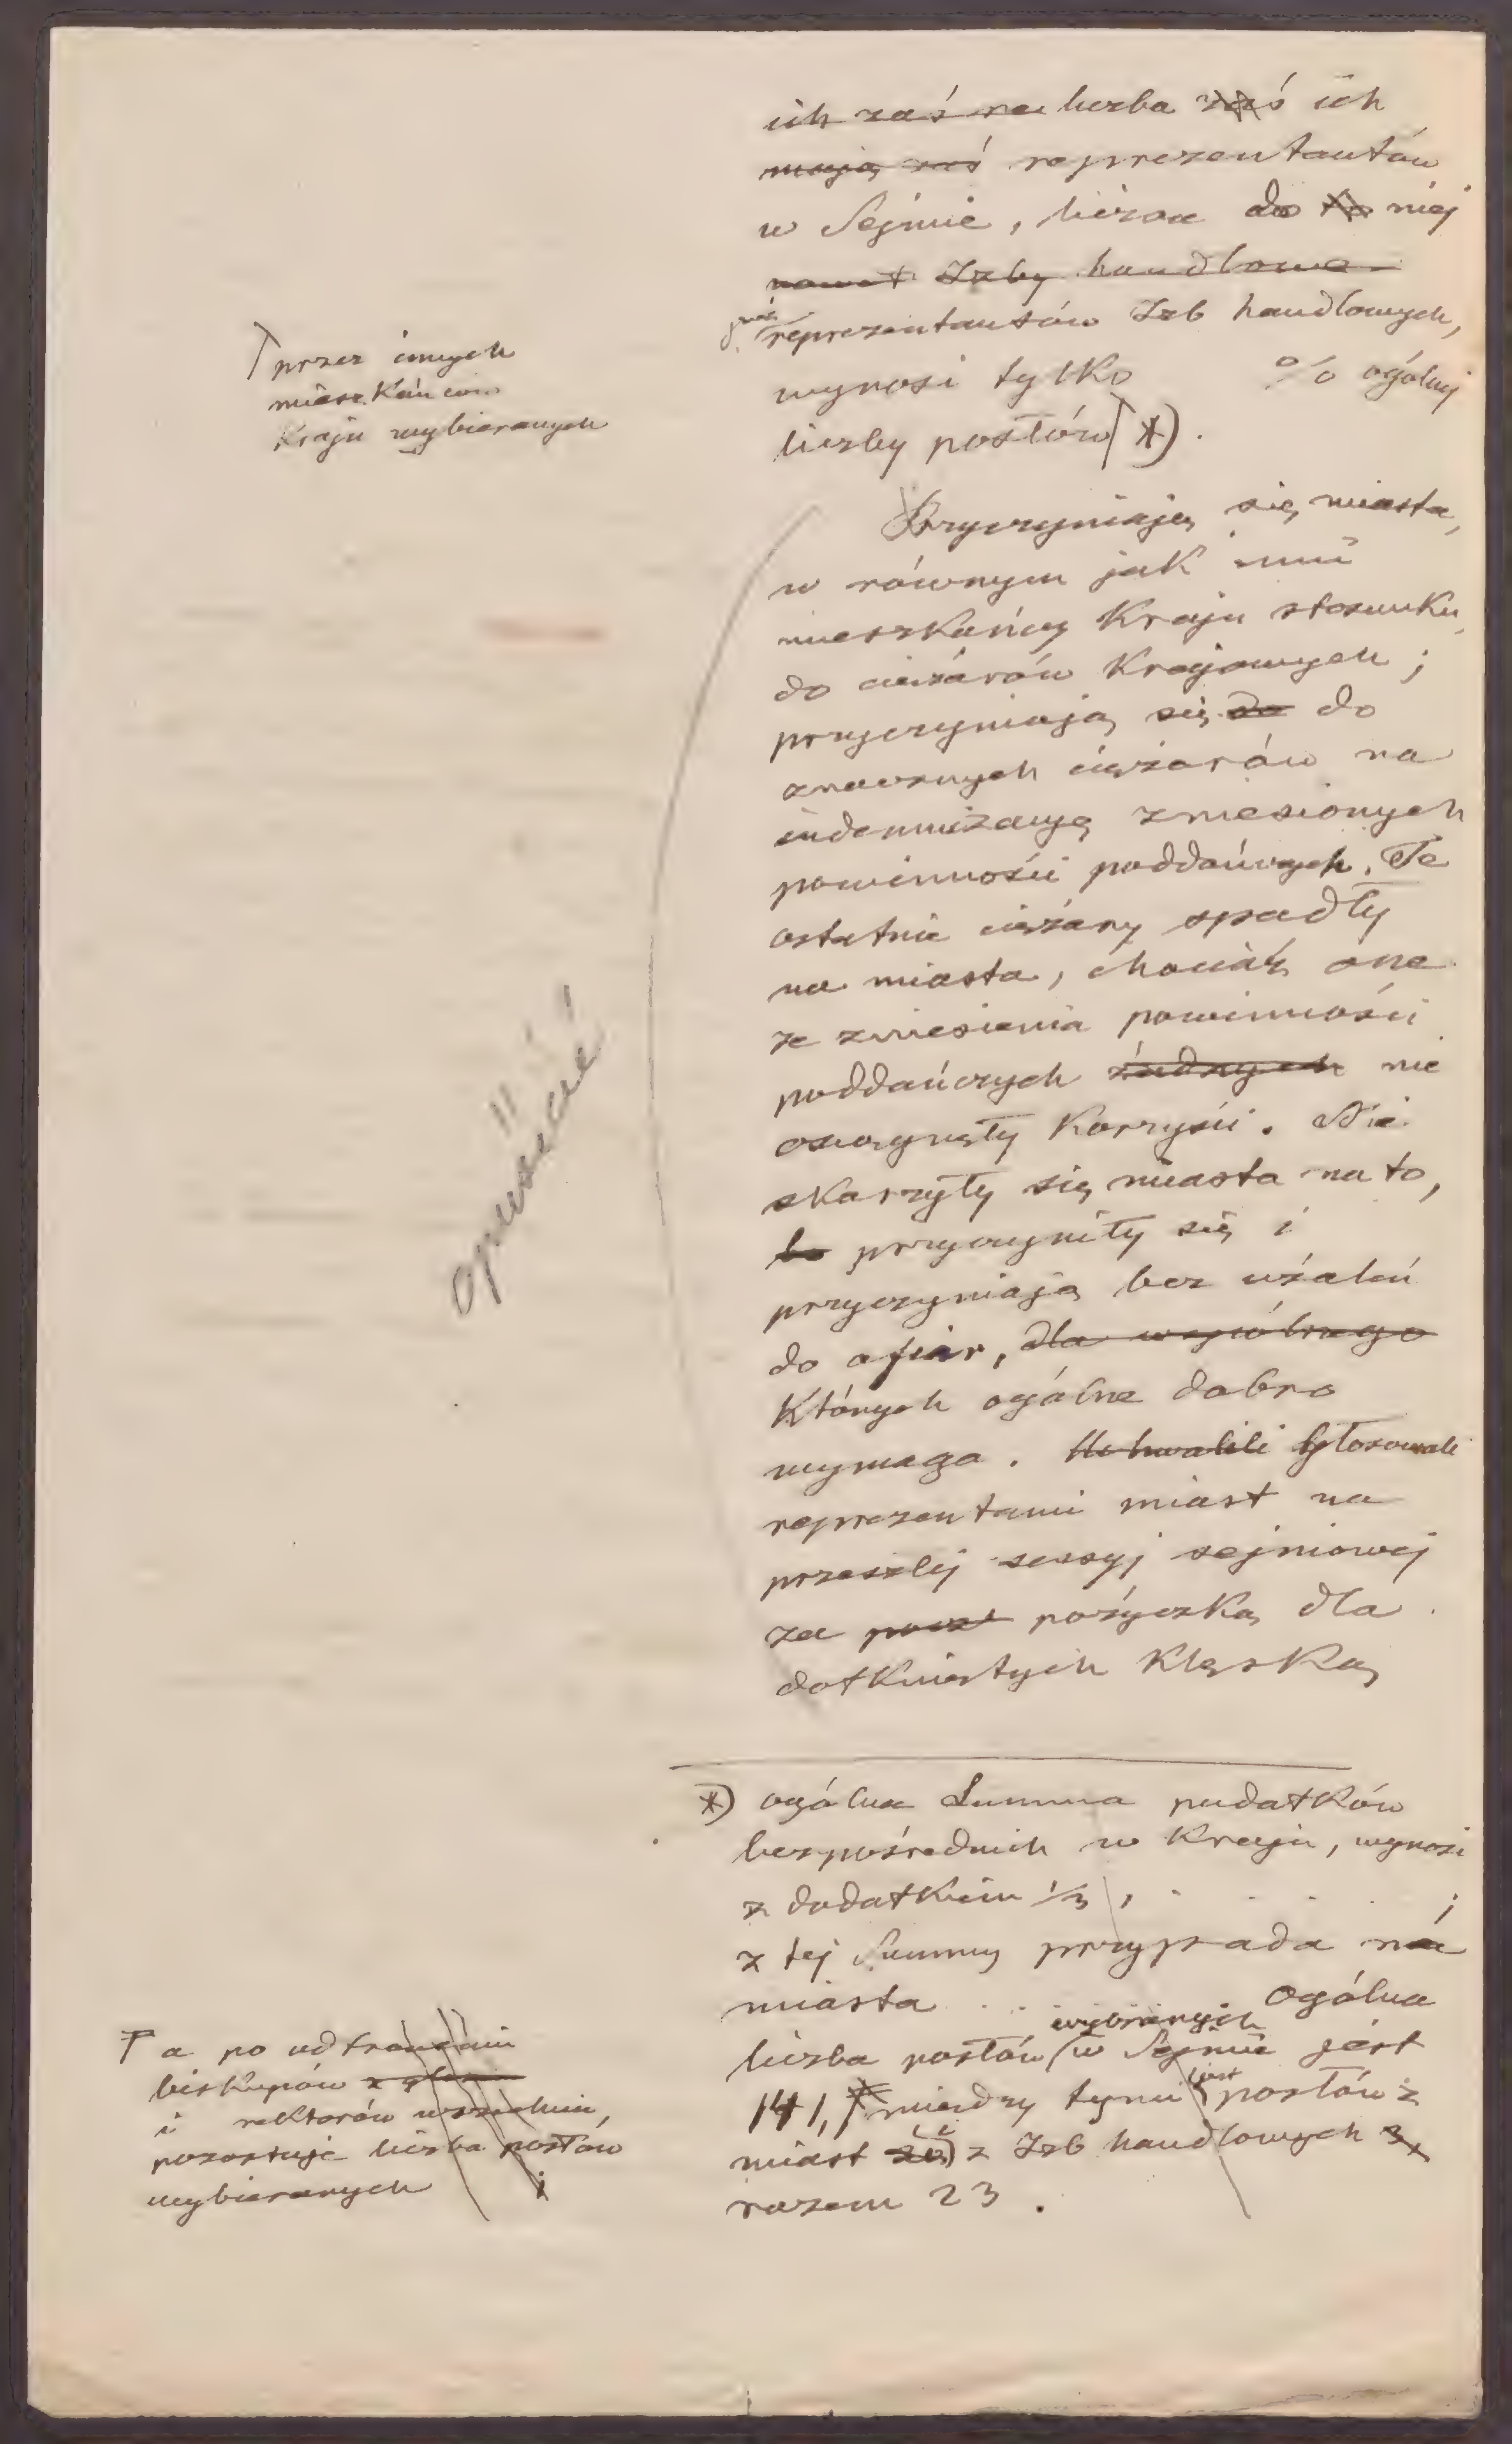 ich zaś na liczba zaś ich
mają zaś reprezentantów
w Sejmie, licząc do to niej
nawet Izby handlowe
reprezentantów Izb handlowych,
wynosi tylko % ogólnej
liczby posłów *).
przez innych
mieszkańców
Kraju wybieranych
Przyczyniają się miasta,
w równym jak inni
mieszkańcy Kraju stosunku,
do ciężarów Krajowych ;
przyczyniają się do do
znacznych ciężarów na
indemnizacyą zniesionych
powinności poddańczych. Te
ostatnie ciężary spadły
na miasta, chociaż one
ze zniesienia powinności
poddańczych żadnych nie
osiągnęły Korzyści. Nie
skarżyły się miasta na to,
bo przyczyniły się i
przyczyniają bez użaleń
do ofiar, dla wspólnego
Których ogólne dobro
wymaga. Uchwalili Głosowali
reprezentanci miast na
przeszłej sessyj sejmowej
za poży pożyczką dla
dotkniętych Klęską
opuścić
*) ogólna Summa podatków
bezpośrednich w Kraju, wynosi
z dodatkiem 1/3, . . . . ;
z tej Summy przypada na
miasta . . Ogólna
wybranych
liczba posłów w Sejmie jest
141, między tymi jest posłów z
miast z Izb handlowych 3,
razem 23.
a po odtrąceniu
biskupów z głos
i rektorów wszechnic,
pozostaje liczba posłów
wybieranych